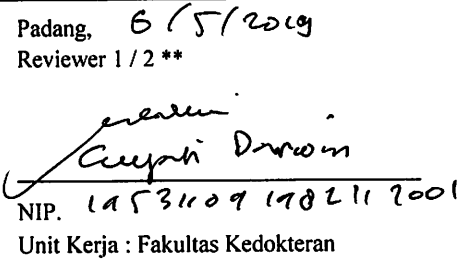 Padang, 6/5/2019
Reviewer 1 / 2 **
Darwin
NIP. 19531109 198211 2001
Unit Kerja : Fakultas Kedokteran